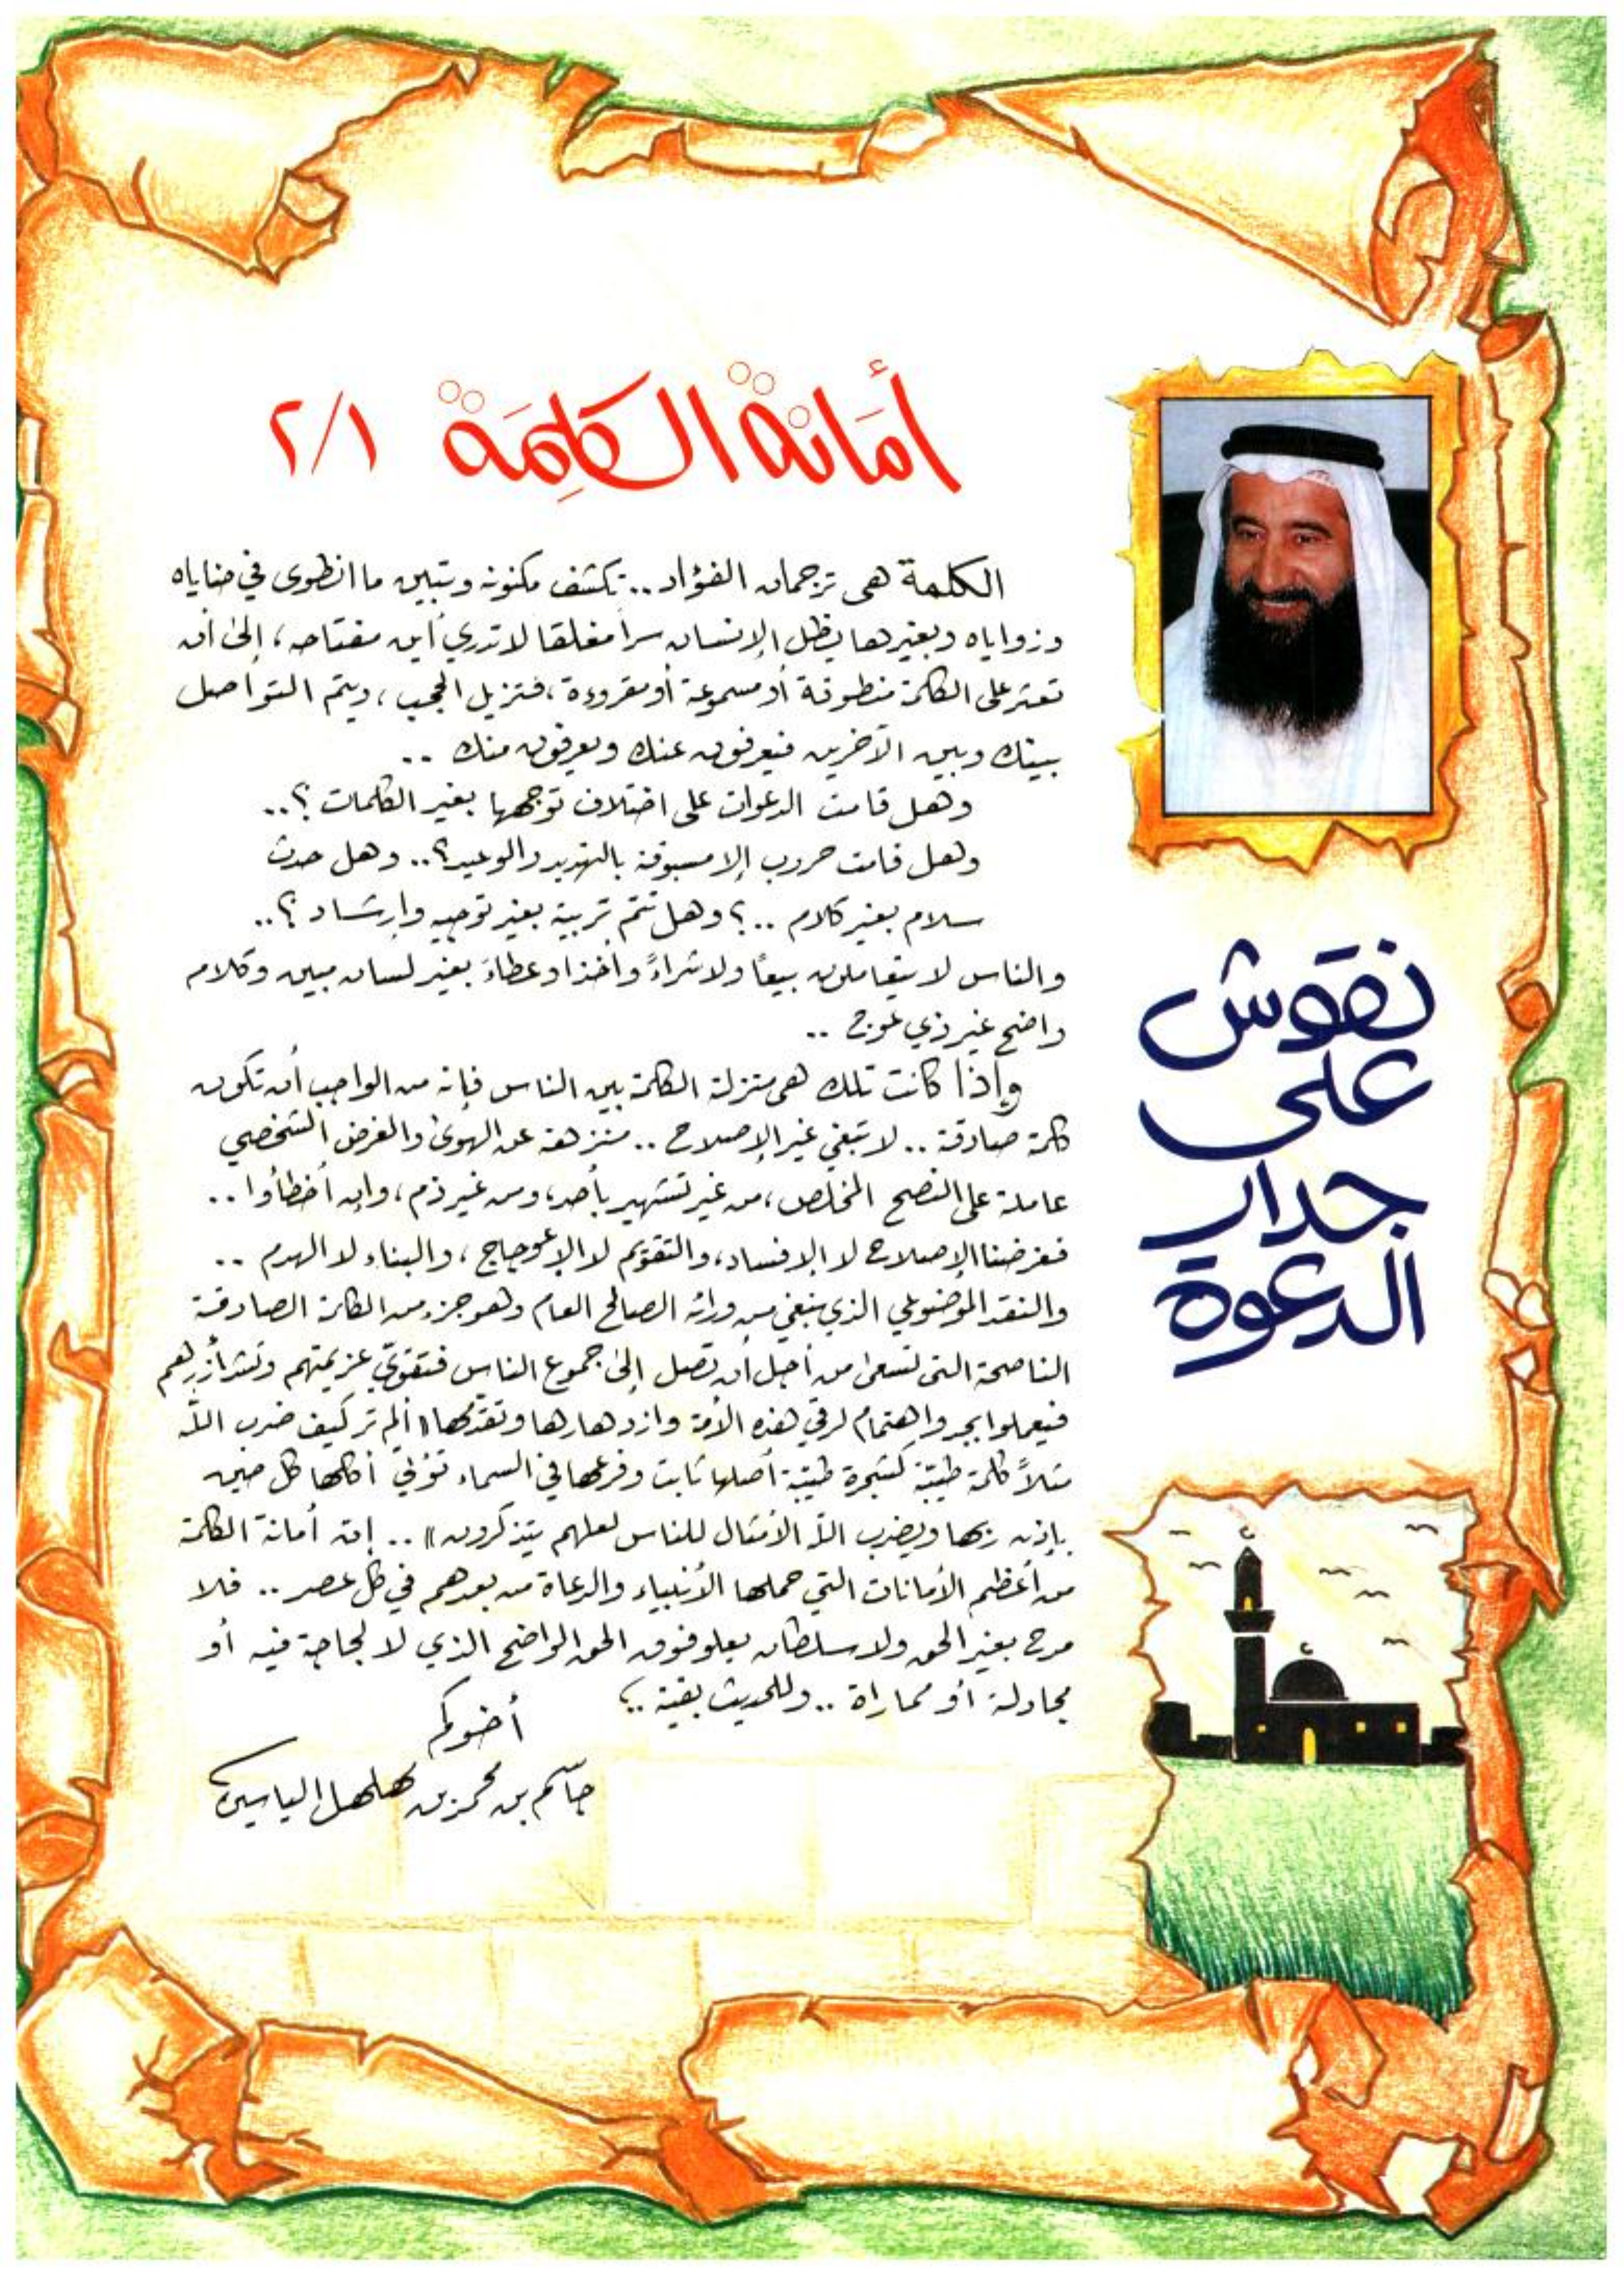 أمانة الكلمة ٢/١
الكلمة هى ترجمان الفؤاد .. تكشف مكنونه وتبين ما انطوى في حناياه
وزواياه وبغيرها يظل الإنسان سرا مغلقا لا تدري أين مفتاحه، إلى أن
تعثر على الكلمة منطوقة أو مسموعة أو مقروءة، فتزيل الحجب، ويتم التواصل
بينك وبين الآخرين فيعرفون عنك ويعرفون منك ..
وهل قامت الدعوات على اختلاف توجهها بغير الكلمات ؟..
وهل قامت حروب إلا مسبوقة بالتهديد والوعيد؟.. وهل حدث
سلام بغير كلام ..؟ وهل تتم تربية بغير توجيه وإرشاد ؟..
والناس لا يتعاملون بيعًا ولا شراءً وأخذا وعطاءً بغير لسان مبين وكلام
واضح غير ذي عوج ..
وإذا كانت تلك هى منزلة الكلمة بين الناس فإنه من الواجب أن تكون
كلمة صادقة .. لا تبغي غير الإصلاح .. منزهة عن الهوى والغرض الشخصي
عاملة على النصح المخلص، من غير تشهير بأحد، ومن غير ذم، وإن أخطأوا ..
فغرضنا الإصلاح لا الإفساد، والتقويم لا الإعوجاج، والبناء لا الهدم ..
والنقد الموضوعي الذي ينبغي من ورائه الصالح العام وهو جزء من الكلمة الصادقة
الناصحة التى تسعى من أجل أن تصل إلى جموع الناس فتقوّي عزيمتهم وتشد أزرهم
فيعملوا بجد واهتمام لرقي هذه الأمة وازدهارها وتقدّمها «ألم تر كيف ضرب الله
مثلاً كلمة طيّبة كشجرة طيّبة أصلها ثابت وفرعها في السماء تؤتي أكلها كل حين
بإذن ربها ويضرب الله الأمثال للناس لعلهم يتذكرون» .. إن أمانة الكلمة
من أعظم الأمانات التي حملها الأنبياء والدعاة من بعدهم في كل عصر .. فلا
مدح بغير الحق ولا سلطان يعلو فوق الحق الواضح الذي لا لجاجة فيه أو
مجادلة أو مماراة .. وللحديث بقية ..؛
أخوكم
جاسم بن محمد بن مهلهل الياسين
نقوش
على
جدار
الدعوة